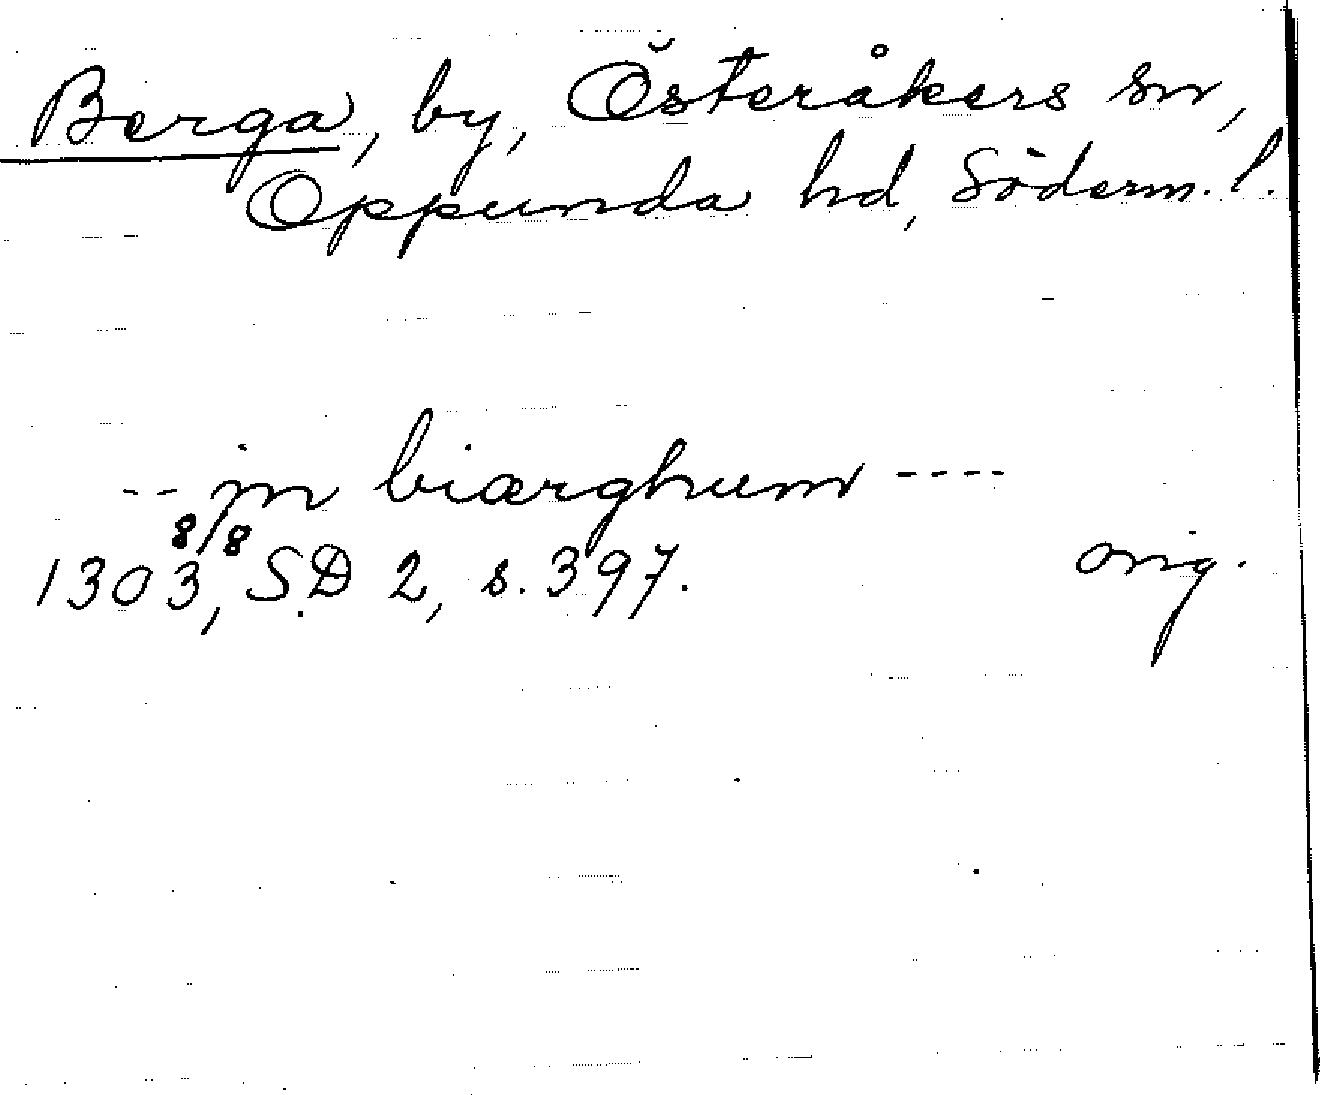 Berga, by, Österåkers sn,
Oppunda hd, Söderm. l.
-- jn biærghum ----
1303 8/8, S.D 2, s. 397. orig.